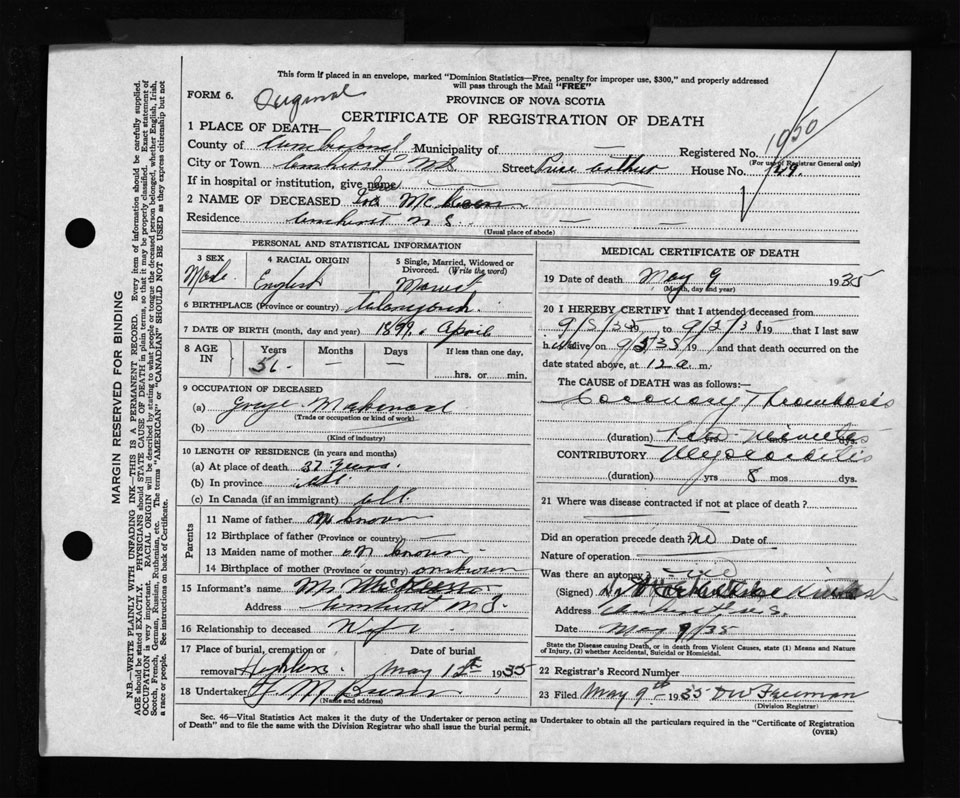 This form if placed in an envelope, marked "Dominion Statistics—Free, penalty for improper use, $300," and properly addressed
will pass through the Mail "FREE"
FORM 6. Original
PROVINCE OF NOVA SCOTIA
CERTIFICATE OF REGISTRATION OF DEATH
1950
1 PLACE OF DEATH—
County of Cumberland Municipality of —
Registered No.
(For use of Registrar General only)
City or Town Amherst N S Street Prince Arthur House No. 149.
If in hospital or institution, give name — —
2 NAME OF DECEASED
Residence Amherst N S. — —
(Usual place of abode)
PERSONAL AND STATISTICAL INFORMATION
3 SEX
Male
4 RACIAL ORIGIN
English
5 Single, Married, Widowed or
Divorced. (Write the word)
6 BIRTHPLACE (Province or country)
7 DATE OF BIRTH (month, day and year) April
8 AGE IN
Years Months Days If less than one day,
— —
hrs. or min.
9 OCCUPATION OF DECEASED
(a)
(Trade or occupation or kind of work)
(b)
(Kind of industry)
10 LENGTH OF RESIDENCE (in years and months)
(a) At place of death 37 years.
(b) In province
(c) In Canada (if an immigrant) all
Parents
11 Name of father
12 Birthplace of father (Province or country) —
13 Maiden name of mother
14 Birthplace of mother (Province or country) unknown
15 Informant's name
Address Amherst N.S.
16 Relationship to deceased Wife
17 Place of burial, cremation or
removal
Date of burial
May 1935
18 Undertaker
(Name and address)
MEDICAL CERTIFICATE OF DEATH
19 Date of death May 9 1935
(Month, day and year)
20 I HEREBY CERTIFY that I attended deceased from
9/5/35 19 to 19 that I last saw
h alive on 19 and that death occurred on
date stated above, at 12 a. m.
The CAUSE OF DEATH was as follows:
Coronary Thrombosis
(duration) minutes dys.
CONTRIBUTORY Myocarditis
(duration) yrs 8 mos dys.
21 Where was disease contracted if not at place of death?
Did an operation precede death? No Date of
Nature of operation
Was there an autopsy?
(Signed)
Address
Date May 9/35
State the Disease causing Death, or in death from Violent Causes, state (1) Means and Nature
of Injury, (2) whether Accidental, Suicidal or Homicidal.
22 Registrar's Record Number
23 Filed May 9th 1935 D W Freeman
(Division Registrar)
Sec. 46—Vital Statistics Act makes it the duty of the Undertaker or person acting as Undertaker to obtain all the particulars required in the "Certificate of Registration
of Death" and to file the same with the Division Registrar who shall issue the burial permit.
(OVER)
MARGIN RESERVED FOR BINDING
N.B.—WRITE PLAINLY WITH UNFADING INK—THIS IS A PERMANENT RECORD. Every item of information should be carefully supplied.
AGE should be stated EXACTLY. PHYSICIANS should STATE CAUSE OF DEATH in plain terms, so that it may be properly classified. Exact statement of
OCCUPATION is very important. RACIAL ORIGIN will be described by stating to what people or tongue the deceased person belonged, whether English, Irish,
Scotch, French, German, Russian, Ruthenian, etc. The terms "AMERICAN" or "CANADIAN" SHOULD NOT BE USED as they express citizenship but not
a race or people. See instructions on back of Certificate.